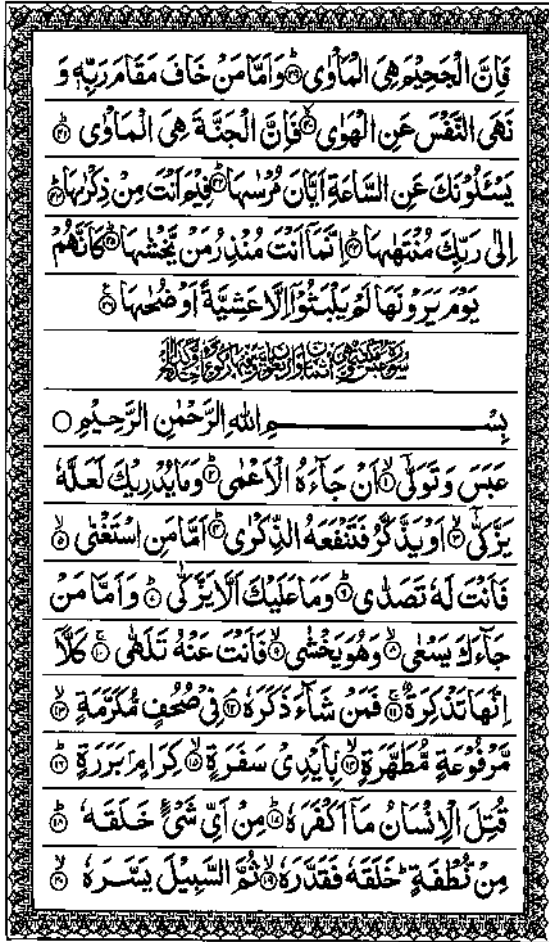 فَاِنَّ الْجَحِيْمَ هِيَ الْمَاْوٰى ۳۹ وَاَمَّا مَنْ خَافَ مَقَامَ رَبِّهٖ وَ
نَهَى النَّفْسَ عَنِ الْهَوٰى ۴۰ فَاِنَّ الْجَنَّةَ هِيَ الْمَاْوٰى ۴۱
يَسْـَٔلُوْنَكَ عَنِ السَّاعَةِ اَيَّانَ مُرْسٰىهَا ۴۲ فِيْمَ اَنْتَ مِنْ ذِكْرٰىهَا ۴۳
اِلٰى رَبِّكَ مُنْتَهٰىهَا ۴۴ اِنَّمَاۤ اَنْتَ مُنْذِرُ مَنْ يَّخْشٰىهَا ۴۵ كَاَنَّهُمْ
يَوْمَ يَرَوْنَهَا لَمْ يَلْبَثُوْۤا اِلَّا عَشِيَّةً اَوْ ضُحٰىهَا ۴۶
بِسْمِ اللهِ الرَّحْمٰنِ الرَّحِيْمِ
عَبَسَ وَتَوَلّٰۤى ۱ اَنْ جَآءَهُ الْاَعْمٰى ۲ وَمَا يُدْرِيْكَ لَعَلَّهٗ
يَزَّكّٰۤى ۳ اَوْ يَذَّكَّرُ فَتَنْفَعَهُ الذِّكْرٰى ۴ اَمَّا مَنِ اسْتَغْنٰى ۵
فَاَنْتَ لَهٗ تَصَدّٰى ۶ وَمَا عَلَيْكَ اَلَّا يَزَّكّٰى ۷ وَاَمَّا مَنْ
جَآءَكَ يَسْعٰى ۸ وَهُوَ يَخْشٰى ۹ فَاَنْتَ عَنْهُ تَلَهّٰى ۱۰ كَلَّاۤ
اِنَّهَا تَذْكِرَةٌ ۱۱ فَمَنْ شَآءَ ذَكَرَهٗ ۱۲ فِيْ صُحُفٍ مُّكَرَّمَةٍ ۱۳
مَّرْفُوْعَةٍ مُّطَهَّرَةٍ ۱۴ بِاَيْدِيْ سَفَرَةٍ ۱۵ كِرَامٍۭ بَرَرَةٍ ۱۶
قُتِلَ الْاِنْسَانُ مَاۤ اَكْفَرَهٗ ۱۷ مِنْ اَيِّ شَيْءٍ خَلَقَهٗ ۱۸
مِنْ نُّطْفَةٍ خَلَقَهٗ فَقَدَّرَهٗ ۱۹ ثُمَّ السَّبِيْلَ يَسَّرَهٗ ۲۰